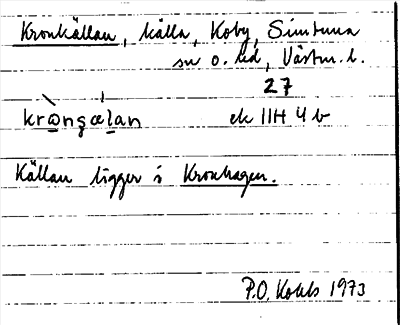 Kronkällan, källa, Koby, Simtuna
sn o. hd, Västm. l.
27
krångælan ek 11H 4 b
Källan ligger i Kronhagen.
P.O. 1973